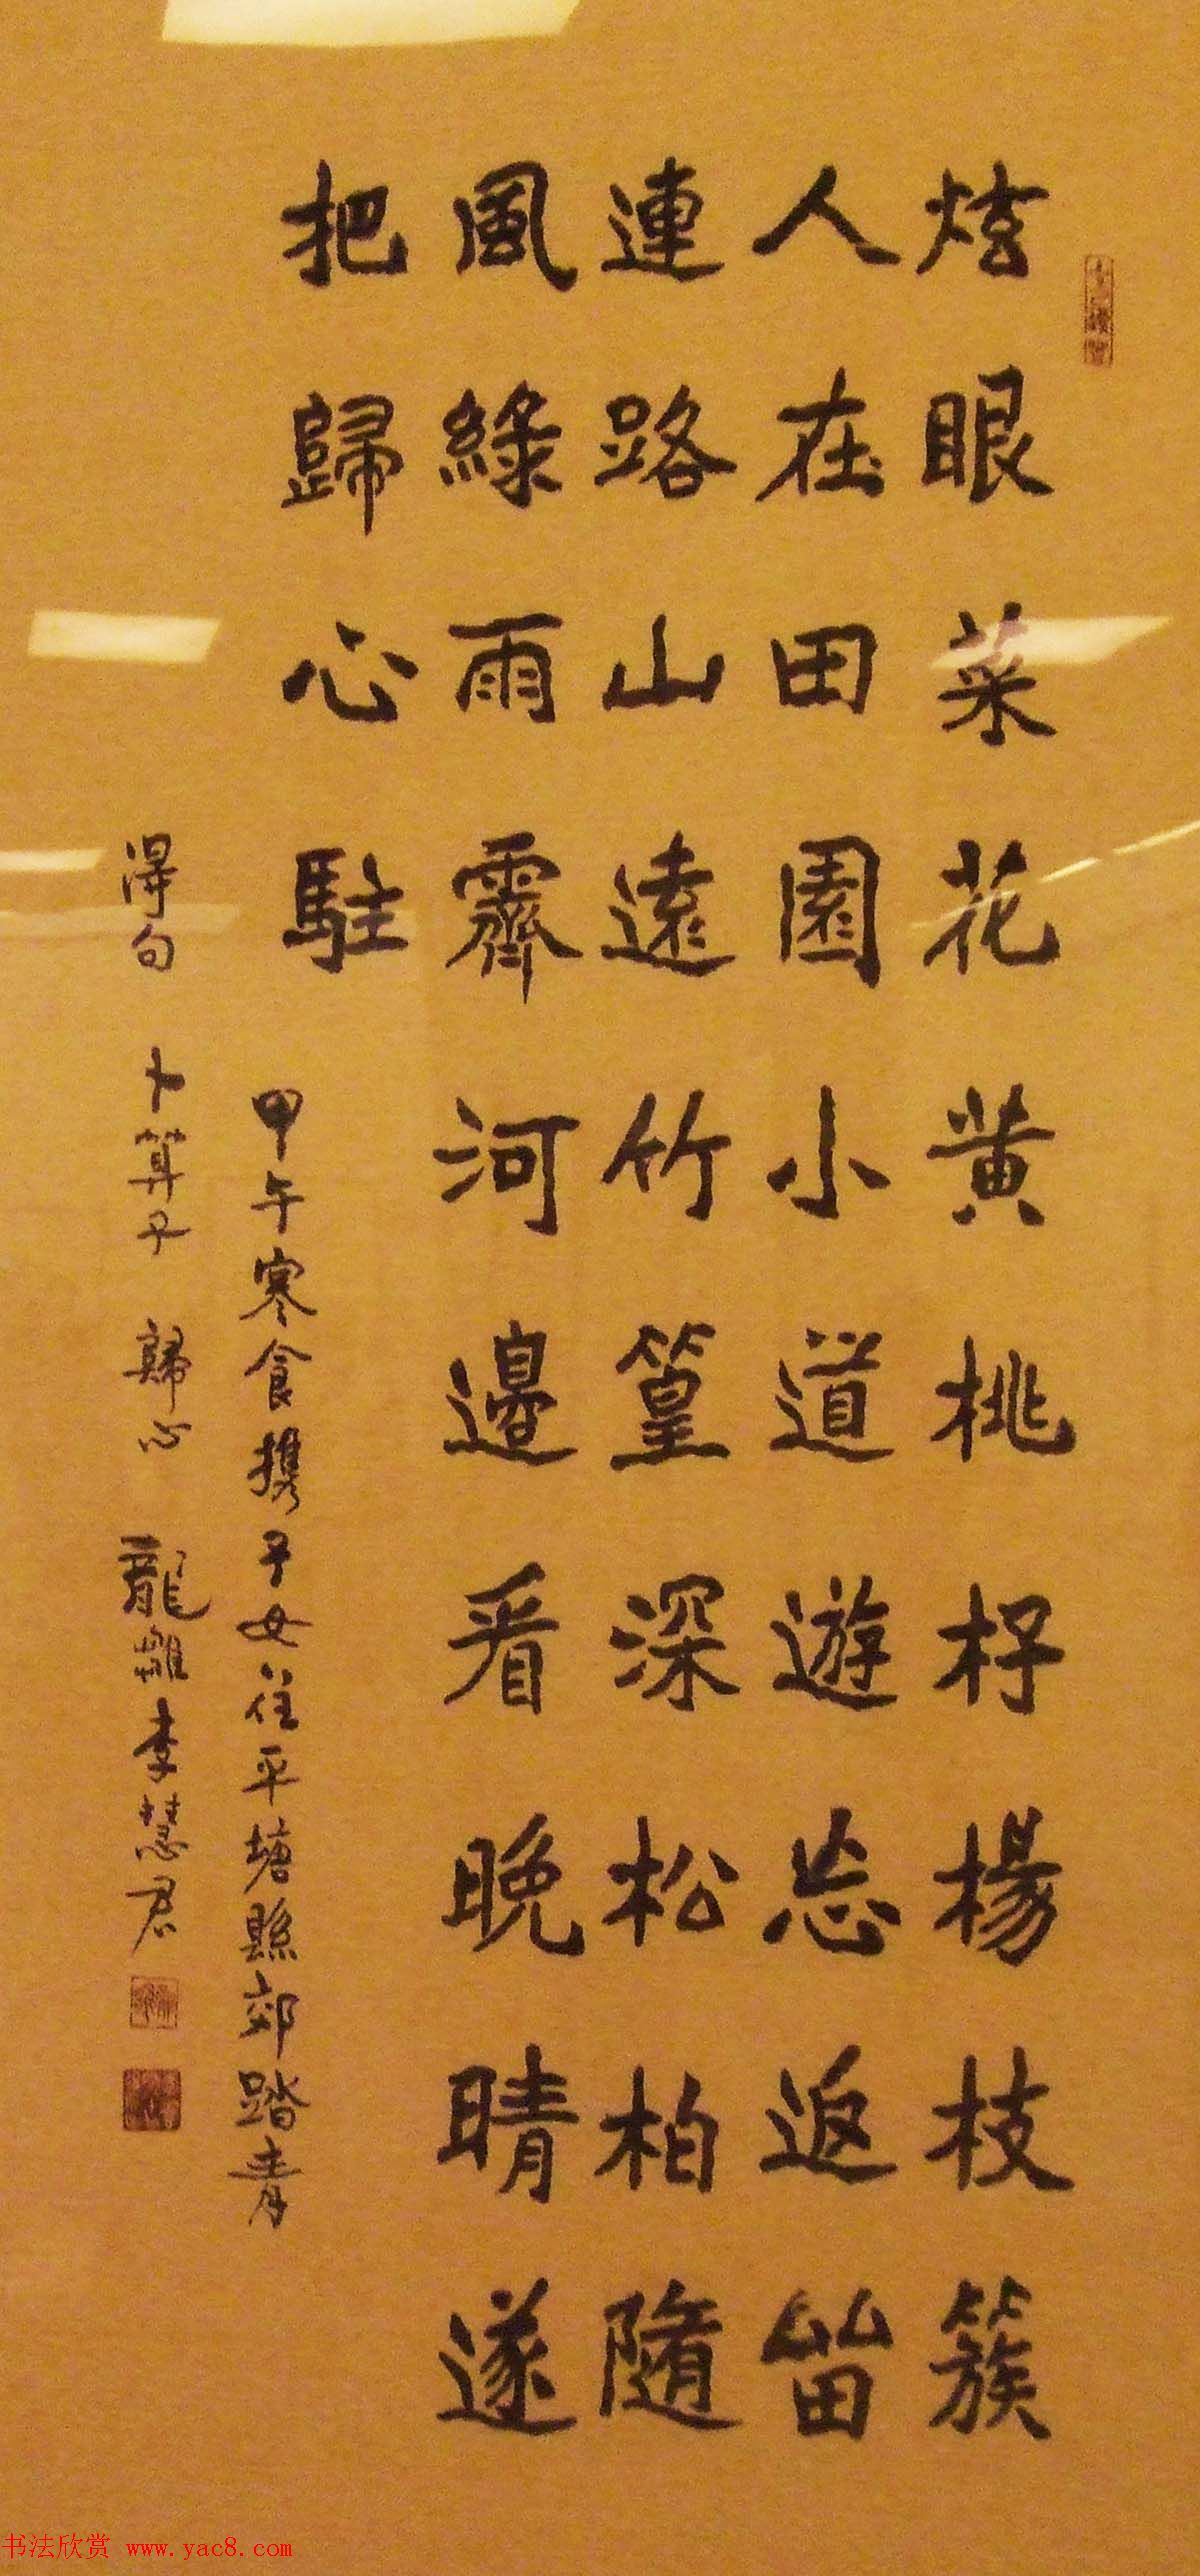 炫眼菜花黄桃杍楊枝簇
人在田園小道遊忘返留
連路山遠竹篁深松柏隨
風綠雨霽河邊看晚晴遂
把歸心駐
甲午寒食携子女往平塘縣郊踏青
得句 卜算子 歸心 龍雛李慧君
书法欣赏 www.yac8.com